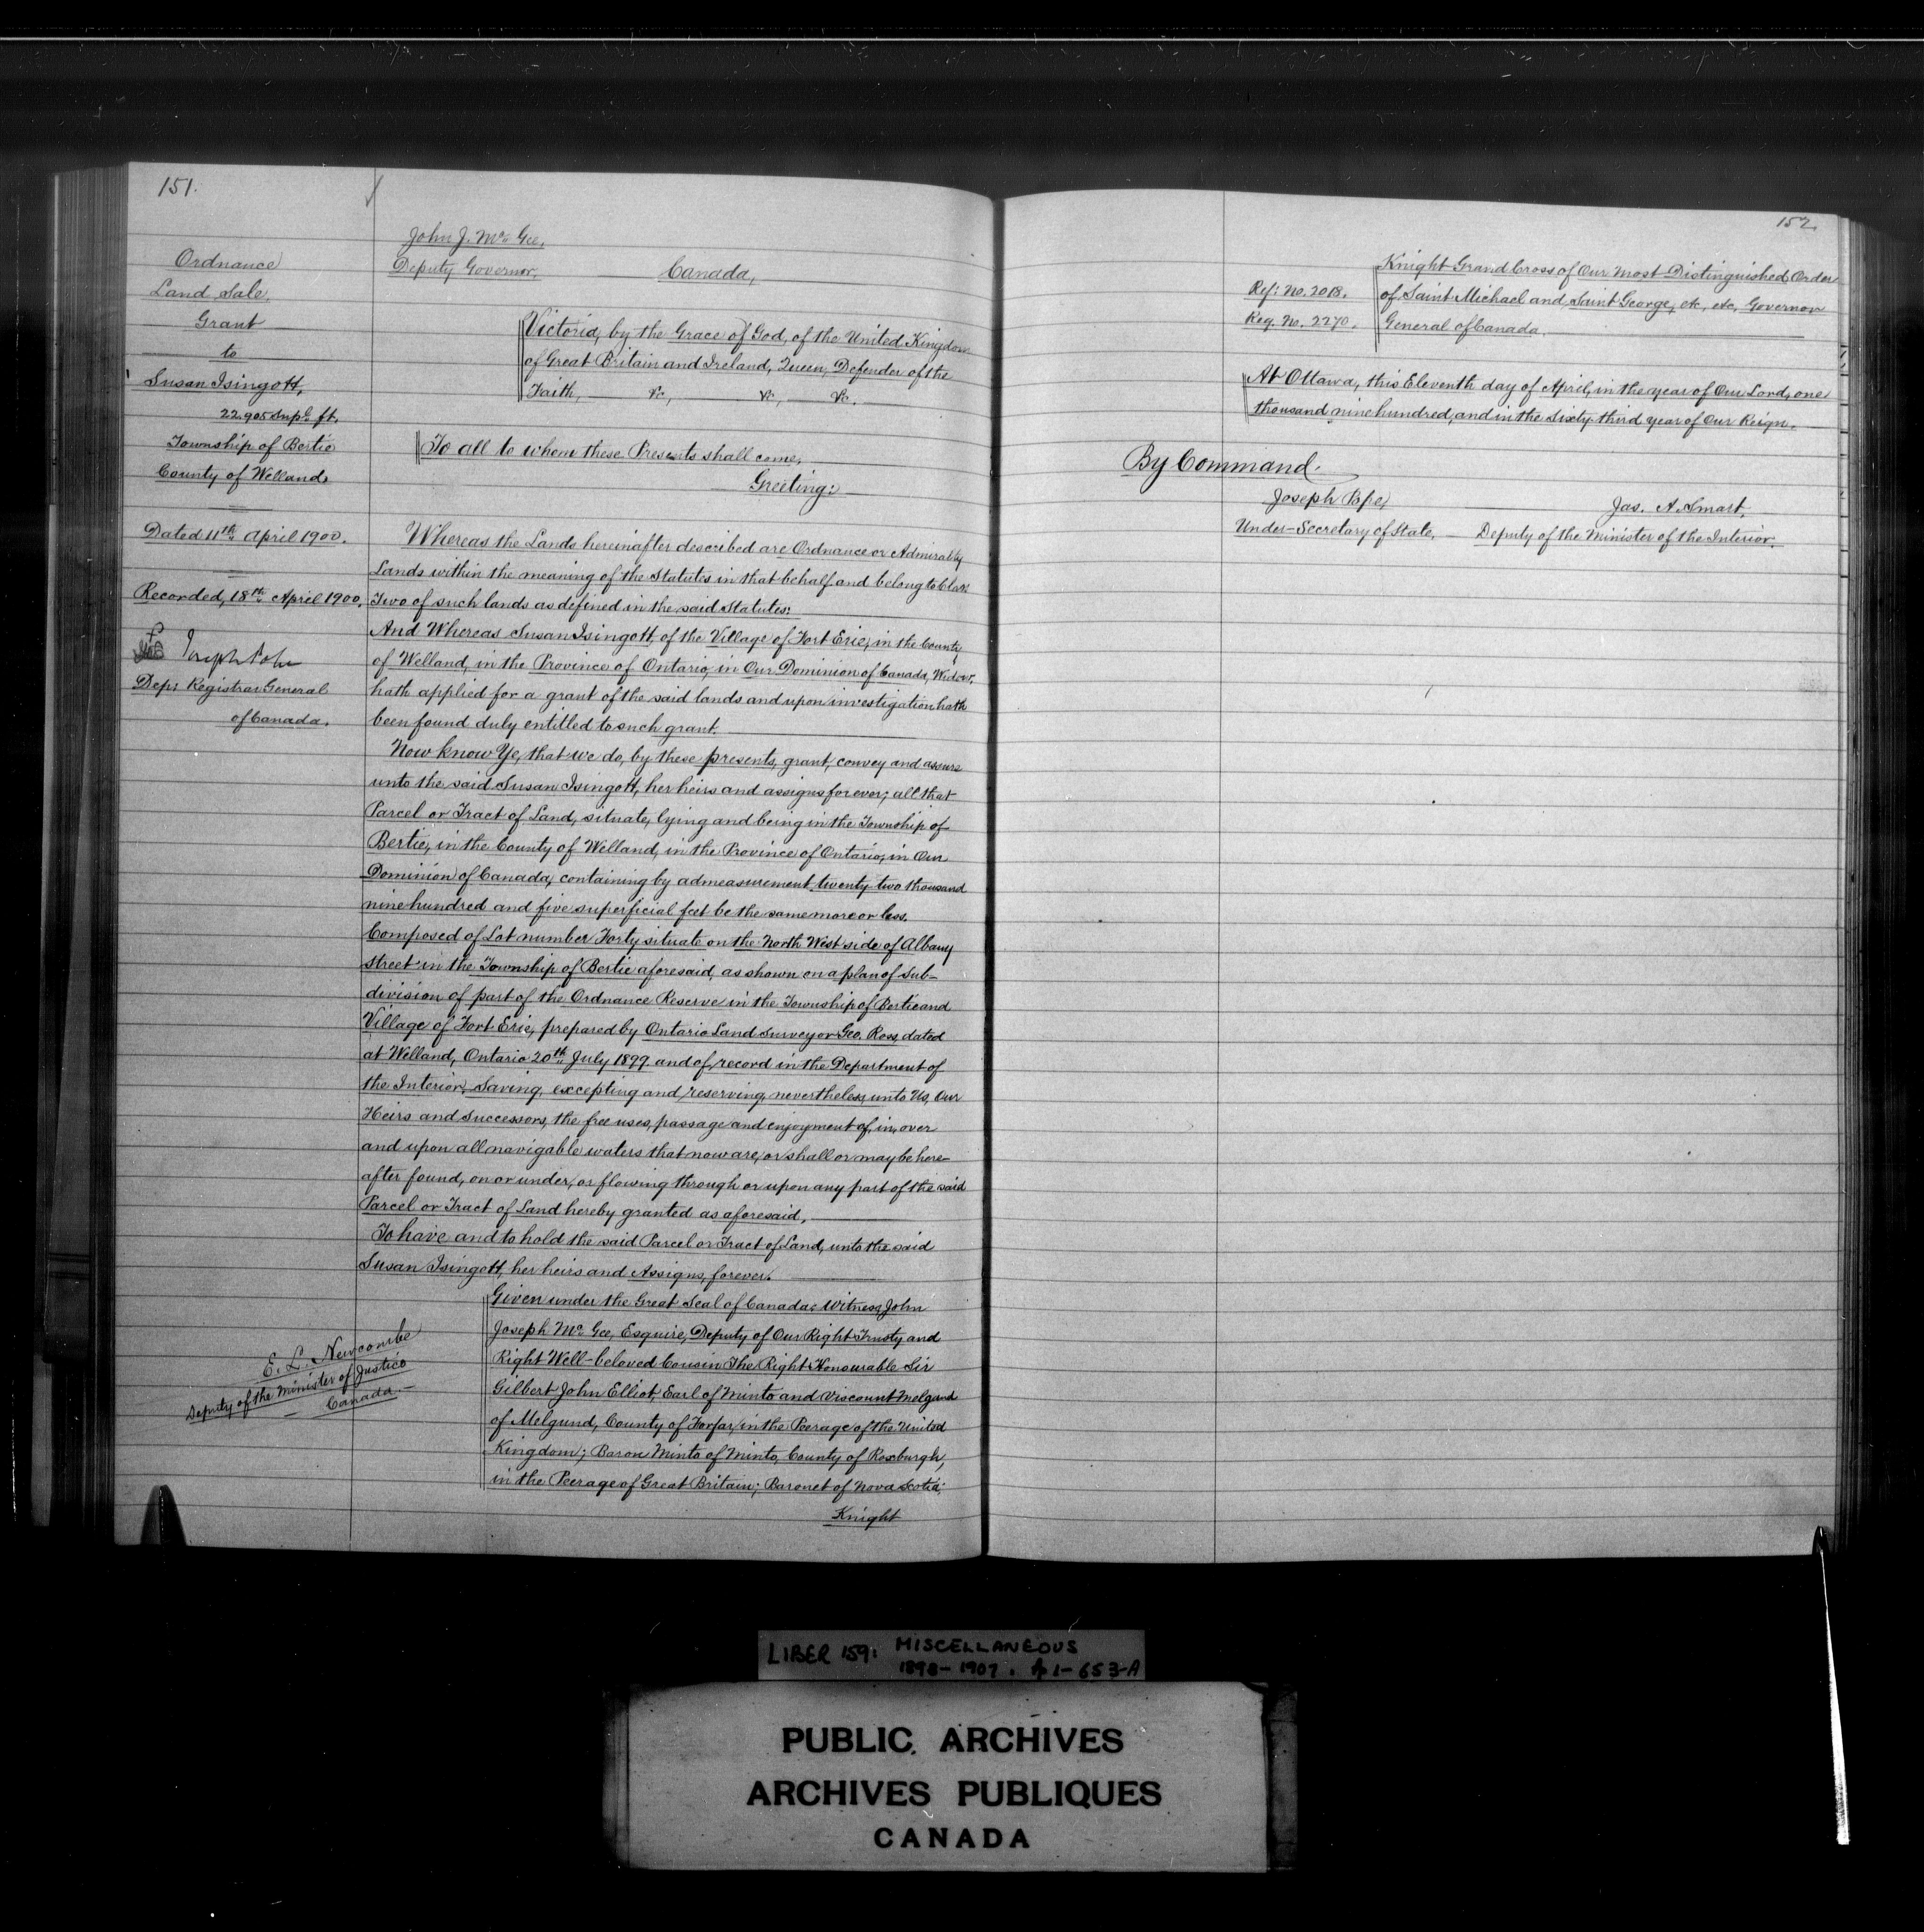 151.
Ordnance
Land Sale.
Grant
to
Susan Isingott,
22.905 Supl. ft.
Township of Bertie
County of Welland.
Dated 11th April 1900.
Recorded, 18th April 1900.
Joseph Pope
Dep: Registrar General
of Canada.
E. L. Newcombe
Deputy of the Minister of Justice
Canada.
John J. McGee.
Deputy Governor.
Canada,
Victoria, by the Grace of God, of the United Kingdom
of Great Britain and Ireland, Queen, Defender of the
Faith, &c, &c, &c.
To all to whom these Presents shall come,
Greeting:
Whereas the Lands hereinafter described are Ordnance or Admiralty
Lands within the meaning of the Statutes in that behalf and belong to Class
Two of such lands as defined in the said Statutes:
And Whereas Susan Isingott, of the Village of Fort Erie, in the County
of Welland, in the Province of Ontario, in Our Dominion of Canada, Widow,
hath applied for a grant of the said lands and upon investigation hath
been found duly entitled to such grant.
Now know Ye, that we do, by these presents, grant, convey and assure
unto the said Susan Isingott, her heirs and assigns forever; all that
Parcel or Tract of Land, situate, lying and being in the Township of
Bertie, in the County of Welland, in the Province of Ontario, in Our
Dominion of Canada, containing by admeasurement twenty two thousand
nine hundred and five superficial feet be the same more or less.
Composed of Lot number Forty situate on the North West side of Albany
street in the Township of Bertie aforesaid, as shown on a plan of sub-
division of part of the Ordnance Reserve in the Township of Bertie and
Village of Fort Erie, prepared by Ontario Land Surveyor Geo. Ross, dated
at Welland, Ontario 20th July 1899. and of record in the Department of
the Interior. Saving, excepting and reserving, nevertheless, unto Us, Our
Heirs and Successors, the free uses, passage and enjoyment of, in, over
and upon all navigable waters that now are, or shall or may be here-
after found, on or under, or flowing through or upon any part of the said
Parcel or Tract of Land hereby granted as aforesaid,
To have and to hold the said Parcel or Tract of Land, unto the said
Susan Isingott, her heirs and Assigns, forever.
Given under the Great Seal of Canada: Witness, John
Joseph McGee, Esquire, Deputy of Our Right Trusty and
Right Well-beloved Cousin The Right Honourable Sir
Gilbert John Elliot, Earl of Minto and Viscount Melgund
of Melgund, County of Forfar, in the Peerage of the United
Kingdom; Baron Minto of Minto, County of Roxburgh,
in the Peerage of Great Britain; Baronet of Nova Scotia;
Knight
152.
Ref: No. 2018.
Reg. No. 2270.
Knight Grand Cross of Our Most Distinguished Order
of Saint Michael and Saint George, etc, etc, Governor
General of Canada.
At Ottawa, this Eleventh day of April, in the year of Our Lord, one
thousand nine hundred, and in the Sixty-third year of Our Reign.
By Command.
Joseph Pope,
Under-Secretary of State,
Jas. A. Smart,
Deputy of the Minister of the Interior.
LIBER 159: MISCELLANEOUS
1898-1907. p 1-653-A
PUBLIC ARCHIVES
ARCHIVES PUBLIQUES
CANADA